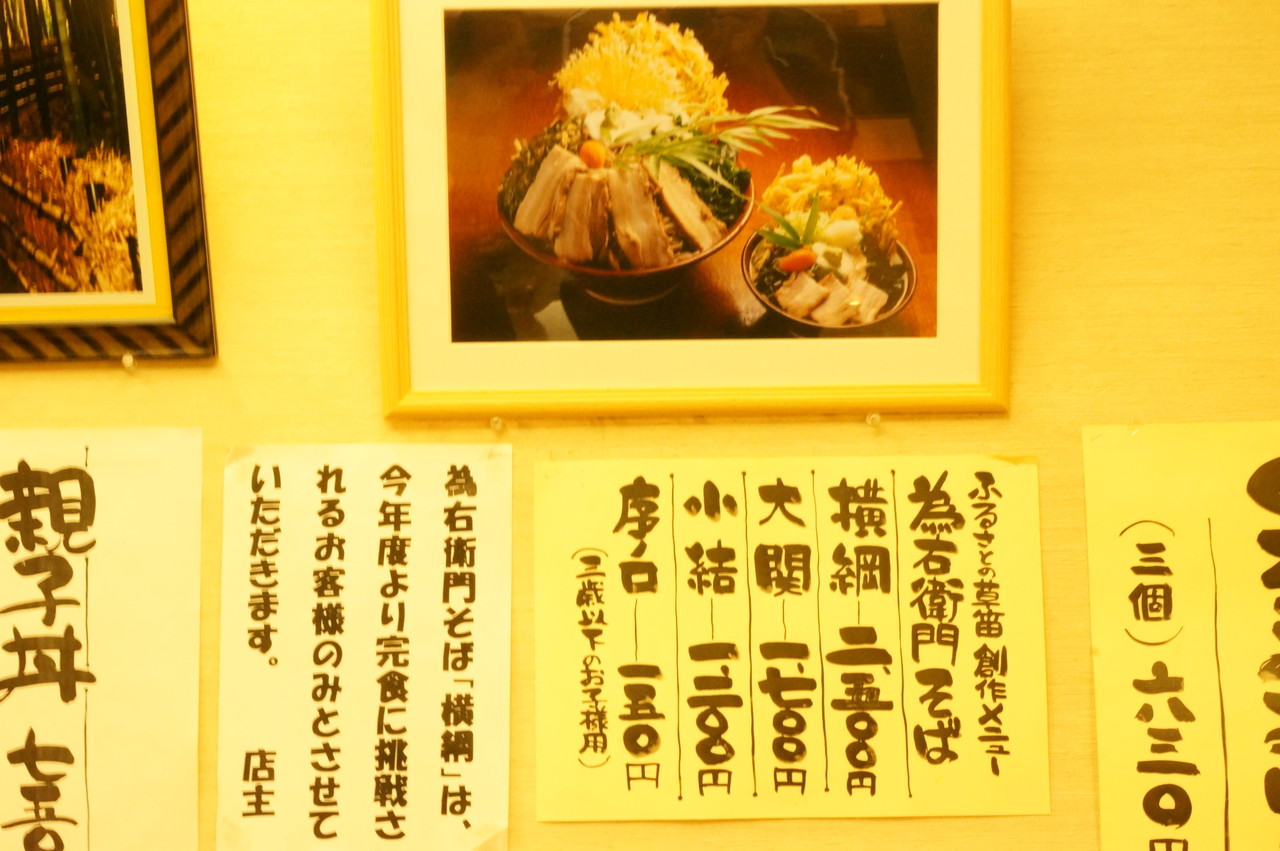 (三個) 六三〇円
ふるさとの草笛 創作メニュー
為右衛門そば
横綱―二、五〇〇円
大関―一、七〇〇円
小結―一、二〇〇円
序ノ口―一五〇円
(三歳以下のお子様用)
為右衛門そば「横綱」は、
今年度より完食に挑戦さ
れるお客様のみとさせて
いただきます。
店主
親子丼 七五〇